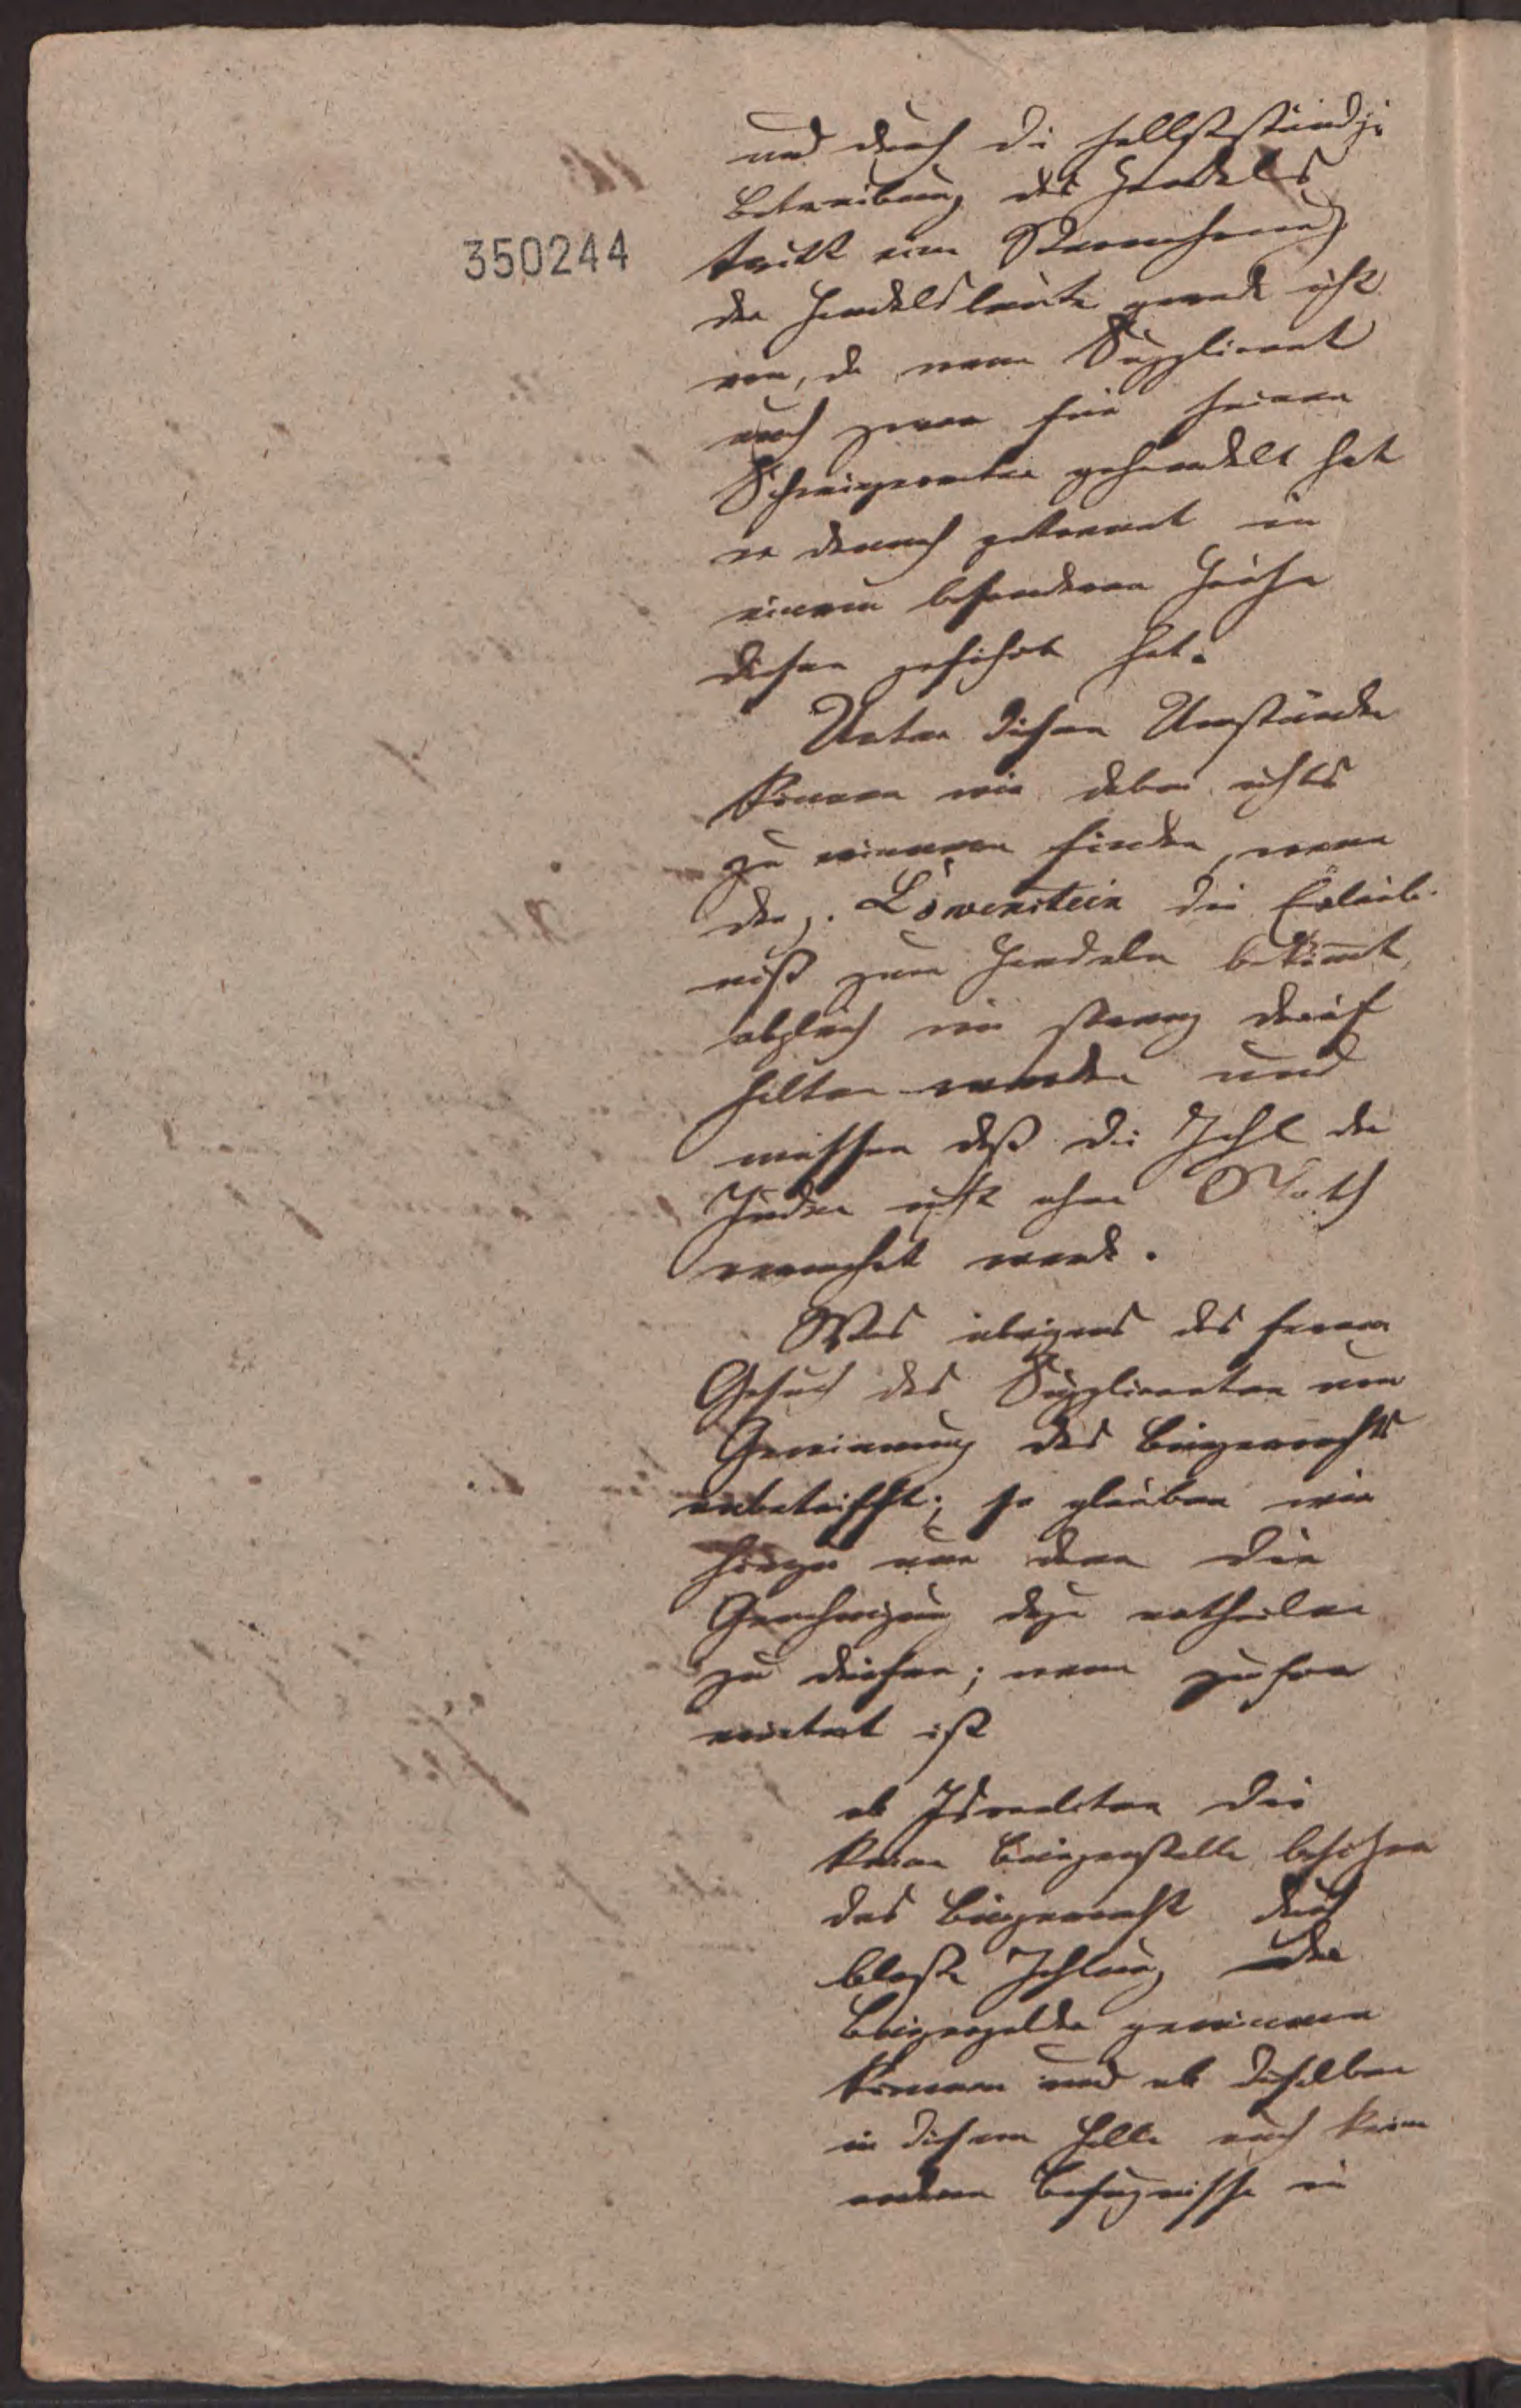 350244
und durch die selbstständige
Betreibung des Handels
tritt eine Vermehrung
der Handelsleute gerade nicht
ein, da wenn Supplicant
auch zwar für seinen
Schwiegervater gehandelt hat
er dennoch getrennt in
einem besonderen Hause
diesen geführt hat.
Unter diesen Umständen
können wir dabei nichts
zu erinnern finden, wenn
der p. Löwenstein die Erlaub-
niß zum Handeln bekömt,
obgleich wir streng darauf
halten werden und
müssen daß die Zahl der
Juden nicht ohne Noth
vermehrt werde.
Was übrigens das fernere
Gesuch des Supplicanten um
Gewinnung des Bürgerrechts
anbetrifft; so glauben wir
hiezu nur dann die
Genehmigung dazu ertheilen
zu dürfen; wenn zuvor
erörtert ist
ob Israeliten die
keine Bürgerstelle besitzen
das Bürgerrecht durch
bloße Zahlung der
Bürgergelder gewinnen
können und ob dieselben
in diesem Falle auch keine
andern Befugnisse in